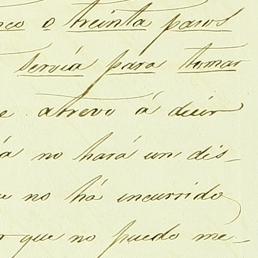 nco o treinta pasos
servía para tomar
e atrevo á decir
á no hará un dis-
no há incurrido
r que no puedo me-